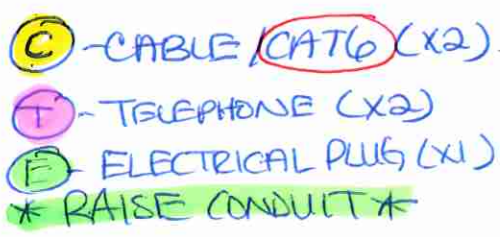 C - CABLE / CAT6 (X2)
T - TELEPHONE (X2)
E - ELECTRICAL PLUG (X1)
* RAISE CONDUIT *